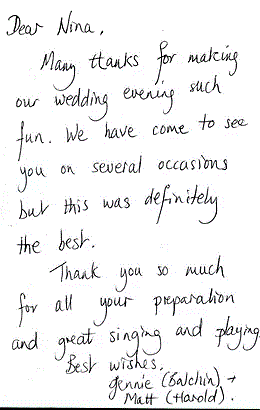 Dear Nina,
Many thanks for making
our wedding evening such
fun. We have come to see
you on several occasions
but this was definitely
the best.
Thank you so much
for all your preparation
and great singing and playing
Best wishes,
Jennie (Balchin) +
Matt (Harold).